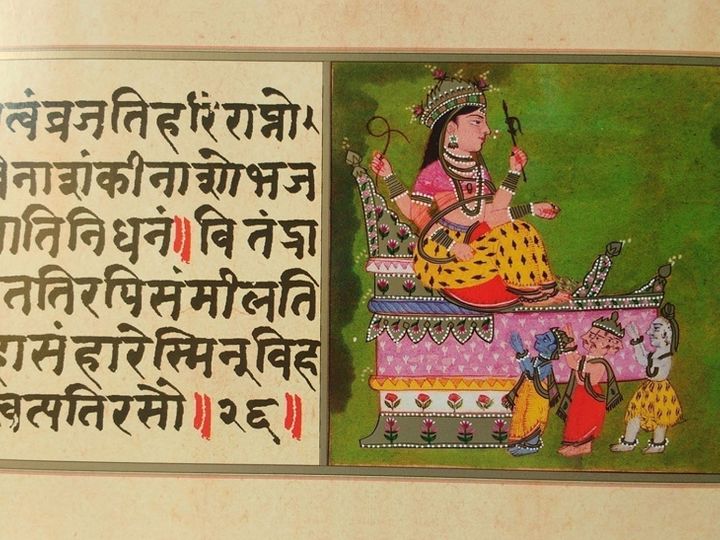 त्वंव्रजतिहरिराप्नो।
नाशंकीनाशोभज
तिनिधनं॥वितंद्रा
ततिरपिसंमीलति
हासंहारेस्मिन्विह
त्वत्पतिरसो॥२६॥